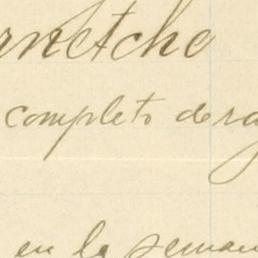 rnetche
completo de ra
en la seman